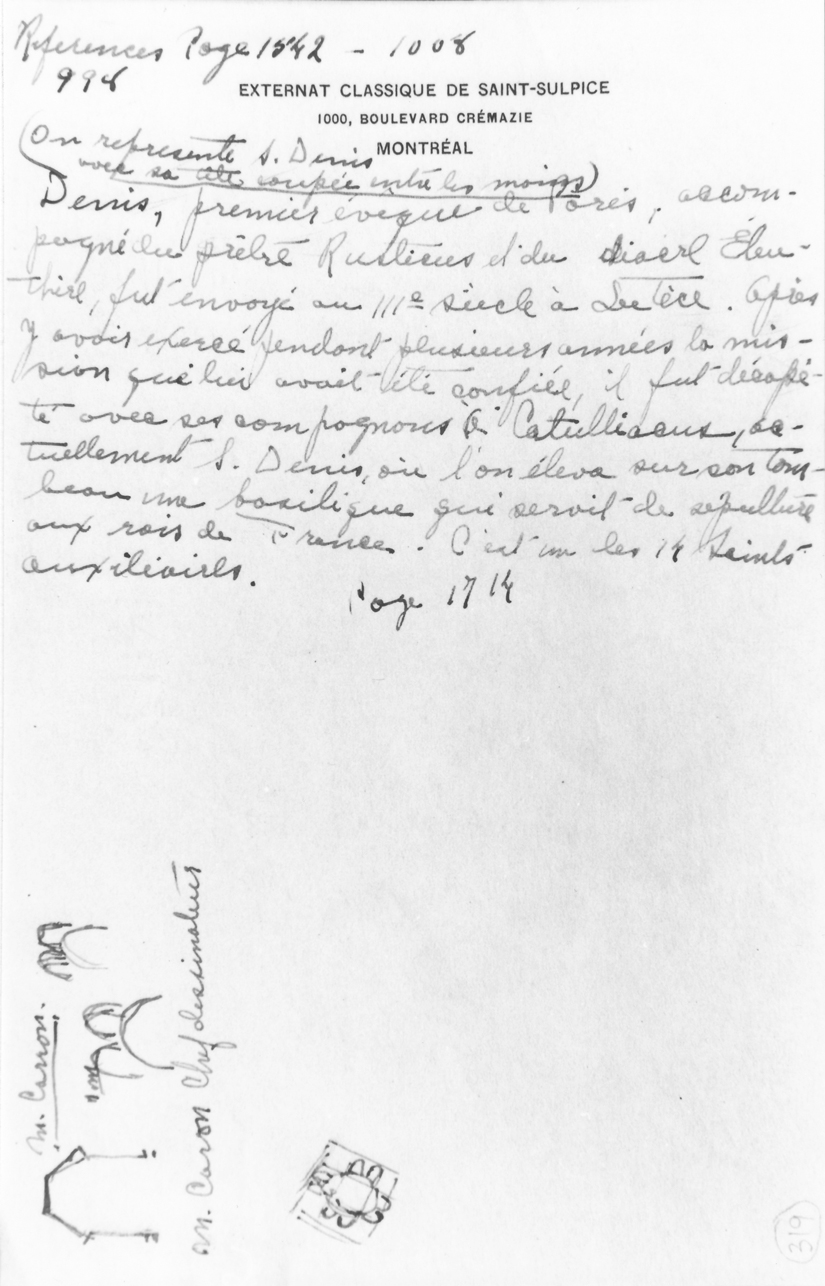 References Page 1542 - 1008
998
EXTERNAT CLASSIQUE DE SAINT-SULPICE
1000, BOULEVARD CRÉMAZIE
MONTRÉAL
(On represente S. Denis
avec sa tête coupée entre les mains)
Denis, premier évêque de Paris, accom-
pagné du prêtre Rusticus et du diacre Éleu-
thère, fut envoyé au IIIe siècle à Lutèce. Après
y avoir exercé pendant plusieurs années la mis-
sion qui lui avait été confiée, il fut décapi-
té avec ses compagnons à Catulliacus, ac-
tuellement S. Denis, où l'on éleva sur son tom-
beau une basilique qui servit de sépulture
aux rois de France. C'est un les 14 Saints
auxiliaires.
Page 1714
M. Carron.
M. Caron Chef dessinateur
319